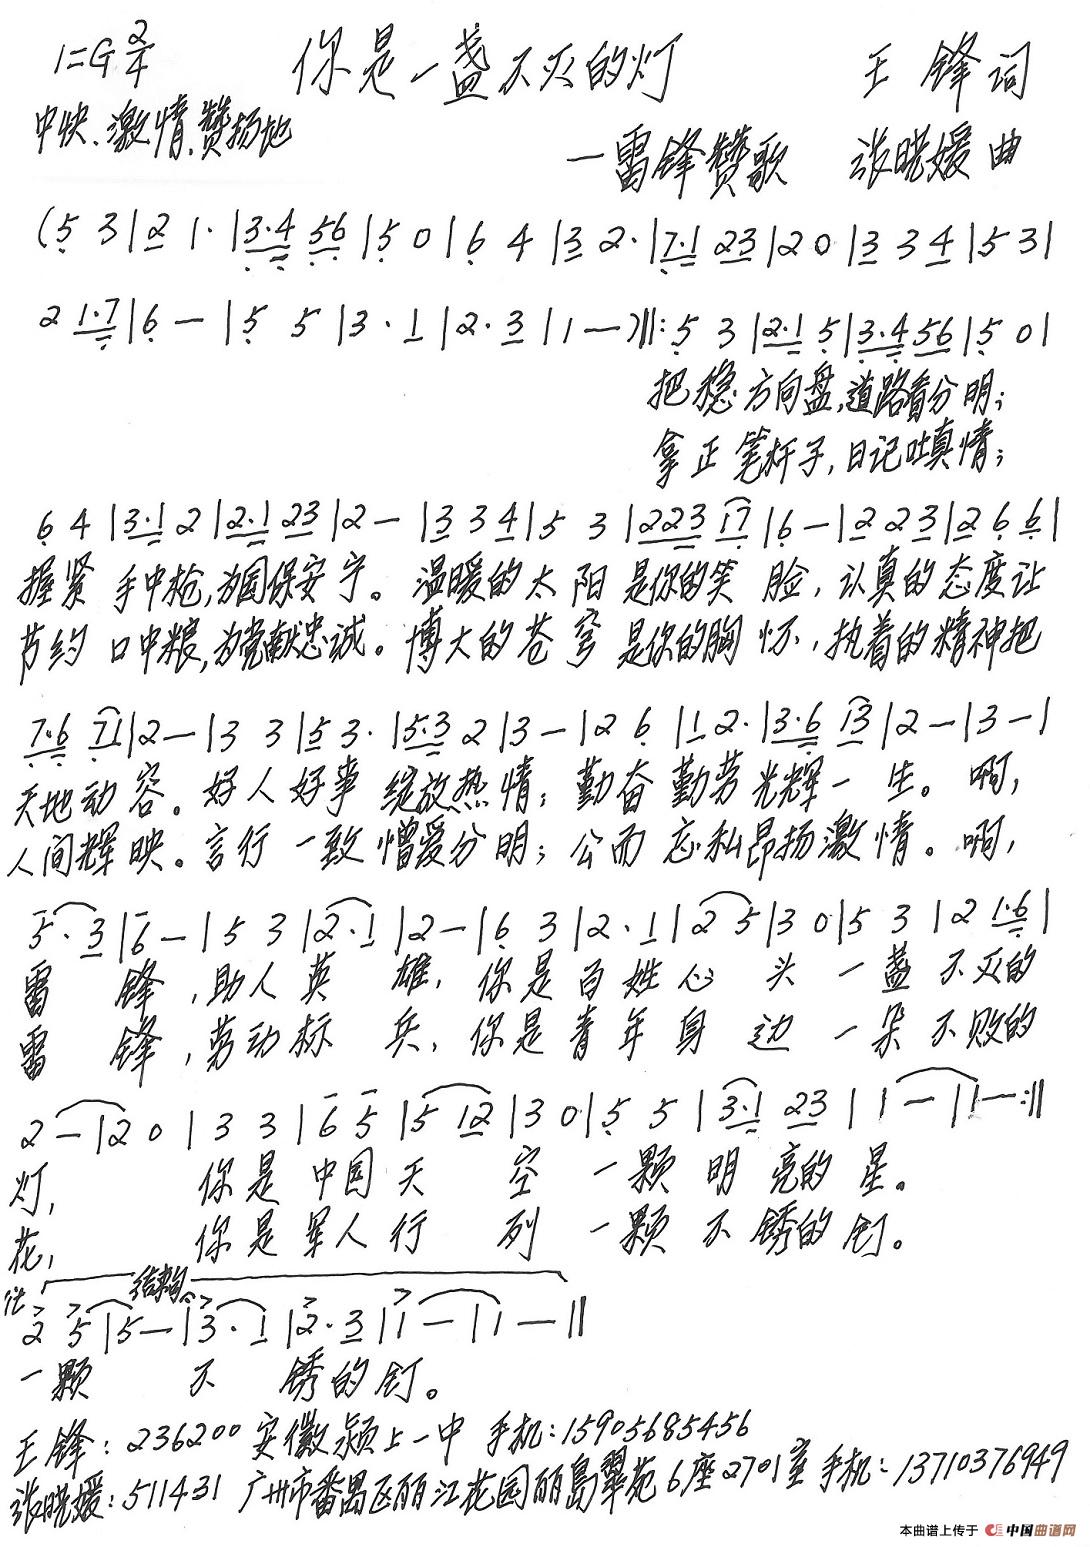 1=G 2/4 你是一盏不灭的灯 王锋词
中快、激情、赞扬地
—雷锋赞歌 张晓媛曲
(5 3|2 1·|3·4 56|5 0|6 4|3 2·|7·1 23|2 0|3 3 4|5 3|
2 1·7|6 —|5 5|3·1|2·3|1—)‖:5 3|2·1 5|3·4 56|5 0|
把稳方向盘,道路看分明;
拿正笔杆子,日记吐真情;
6 4|3·1 2|2·1 23|2—|3 3 4|5 3|223 17|6—|2 2 3|2 6 6|
握紧手中枪,为国保安宁。温暖的太阳是你的笑脸,认真的态度让
节约口中粮,为党献忠诚。博大的苍穹是你的胸怀,执着的精神把
7·6 71|2—|3 3|5 3·|5·3 2|3—|2 6|1 2·|3·6 13|2—|3—|
天地动容。好人好事绽放热情;勤奋勤劳光辉一生。啊,
人间辉映。言行一致憎爱分明;公而忘私昂扬激情。啊,
5·3|6—|5 3|2·1|2—|6 3|2·1|2 5|3 0|5 3|2 1·6|
雷锋,助人英雄,你是百姓心头一盏不灭的
雷锋,劳动标兵,你是青年身边一朵不败的
2—|2 0|3 3|6 5|5 12|3 0|5 5|3·1 23|1—|1—:‖
灯,你是中国天空一颗明亮的星。
花,你是军人行列一颗不锈的钉。
结束句
2 5|5—|3·1|2·3|1—|1—‖
一颗不锈的钉。
王锋:236200 安徽颍上一中 手机:15905685456
张晓媛:511431 广州市番禺区丽江花园丽岛翠苑6座2701室 手机:13710376949
本曲谱上传于 中国曲谱网